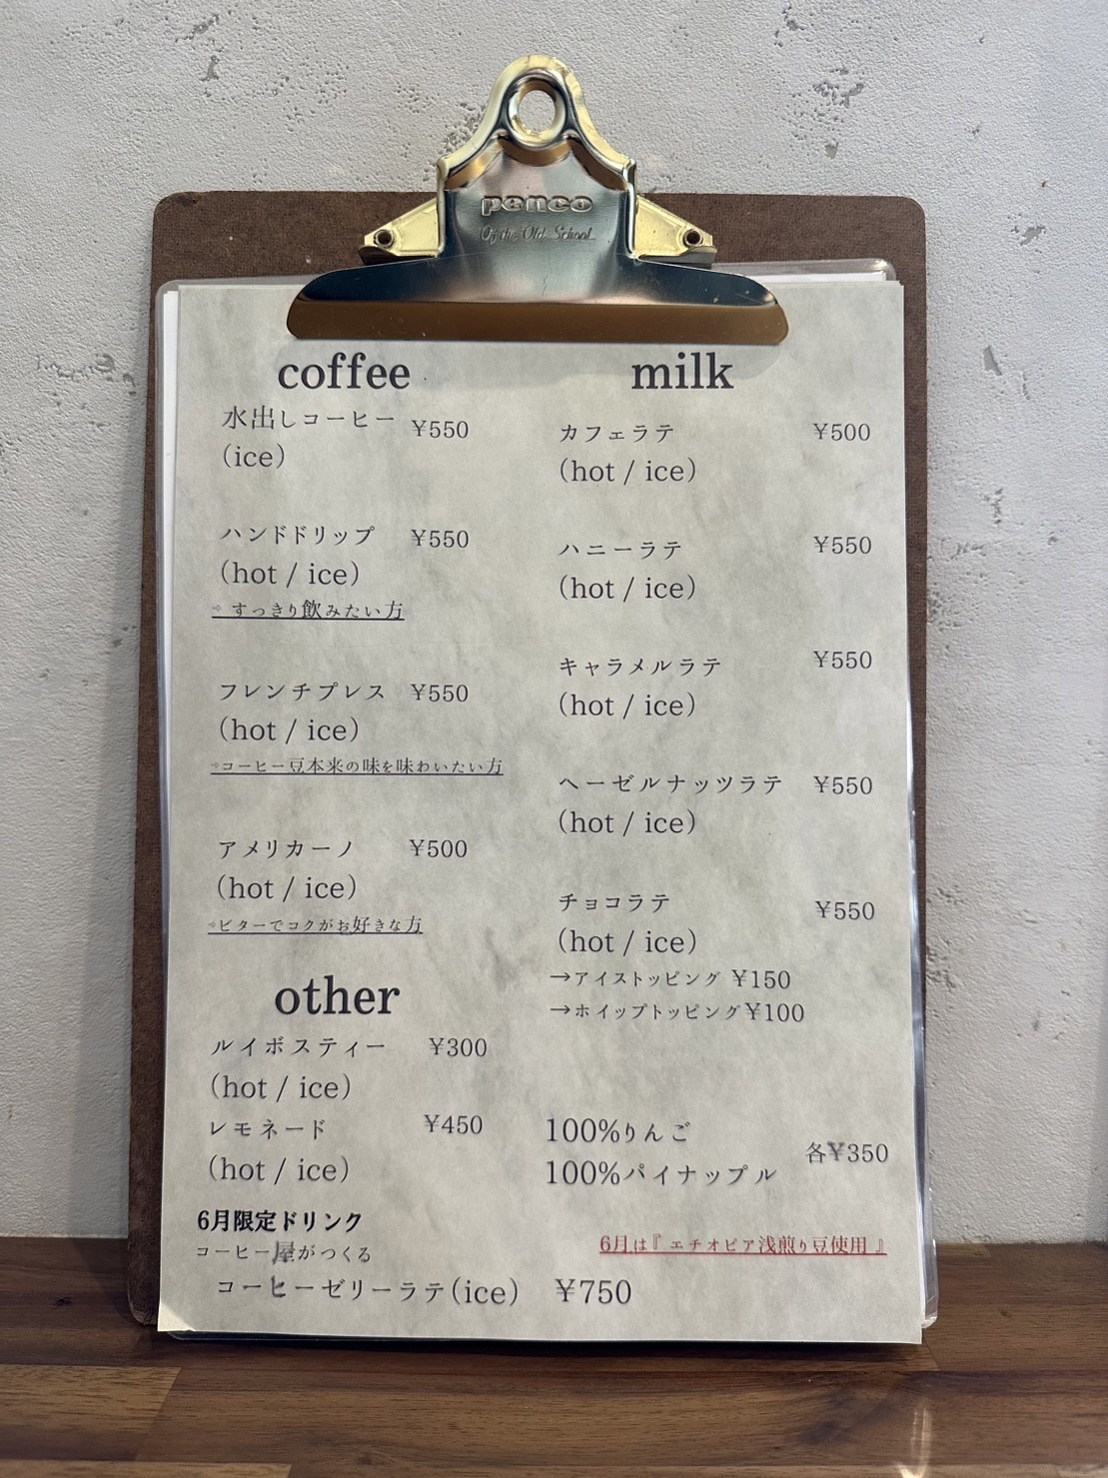 penco
Of the Old School
coffee
水出しコーヒー ¥550
(ice)
ハンドドリップ ¥550
(hot / ice)
⇒ すっきり飲みたい方
フレンチプレス ¥550
(hot / ice)
⇒コーヒー豆本来の味を味わいたい方
アメリカーノ ¥500
(hot / ice)
⇒ビターでコクがお好きな方
other
ルイボスティー ¥300
(hot / ice)
レモネード ¥450
(hot / ice)
6月限定ドリンク
コーヒー屋がつくる
コーヒーゼリーラテ(ice) ¥750
milk
カフェラテ ¥500
(hot / ice)
ハニーラテ ¥550
(hot / ice)
キャラメルラテ ¥550
(hot / ice)
ヘーゼルナッツラテ ¥550
(hot / ice)
チョコラテ ¥550
(hot / ice)
→アイストッピング ¥150
→ホイップトッピング¥100
100%りんご
各¥350
100%パイナップル
6月は『 エチオピア浅煎り豆使用 』